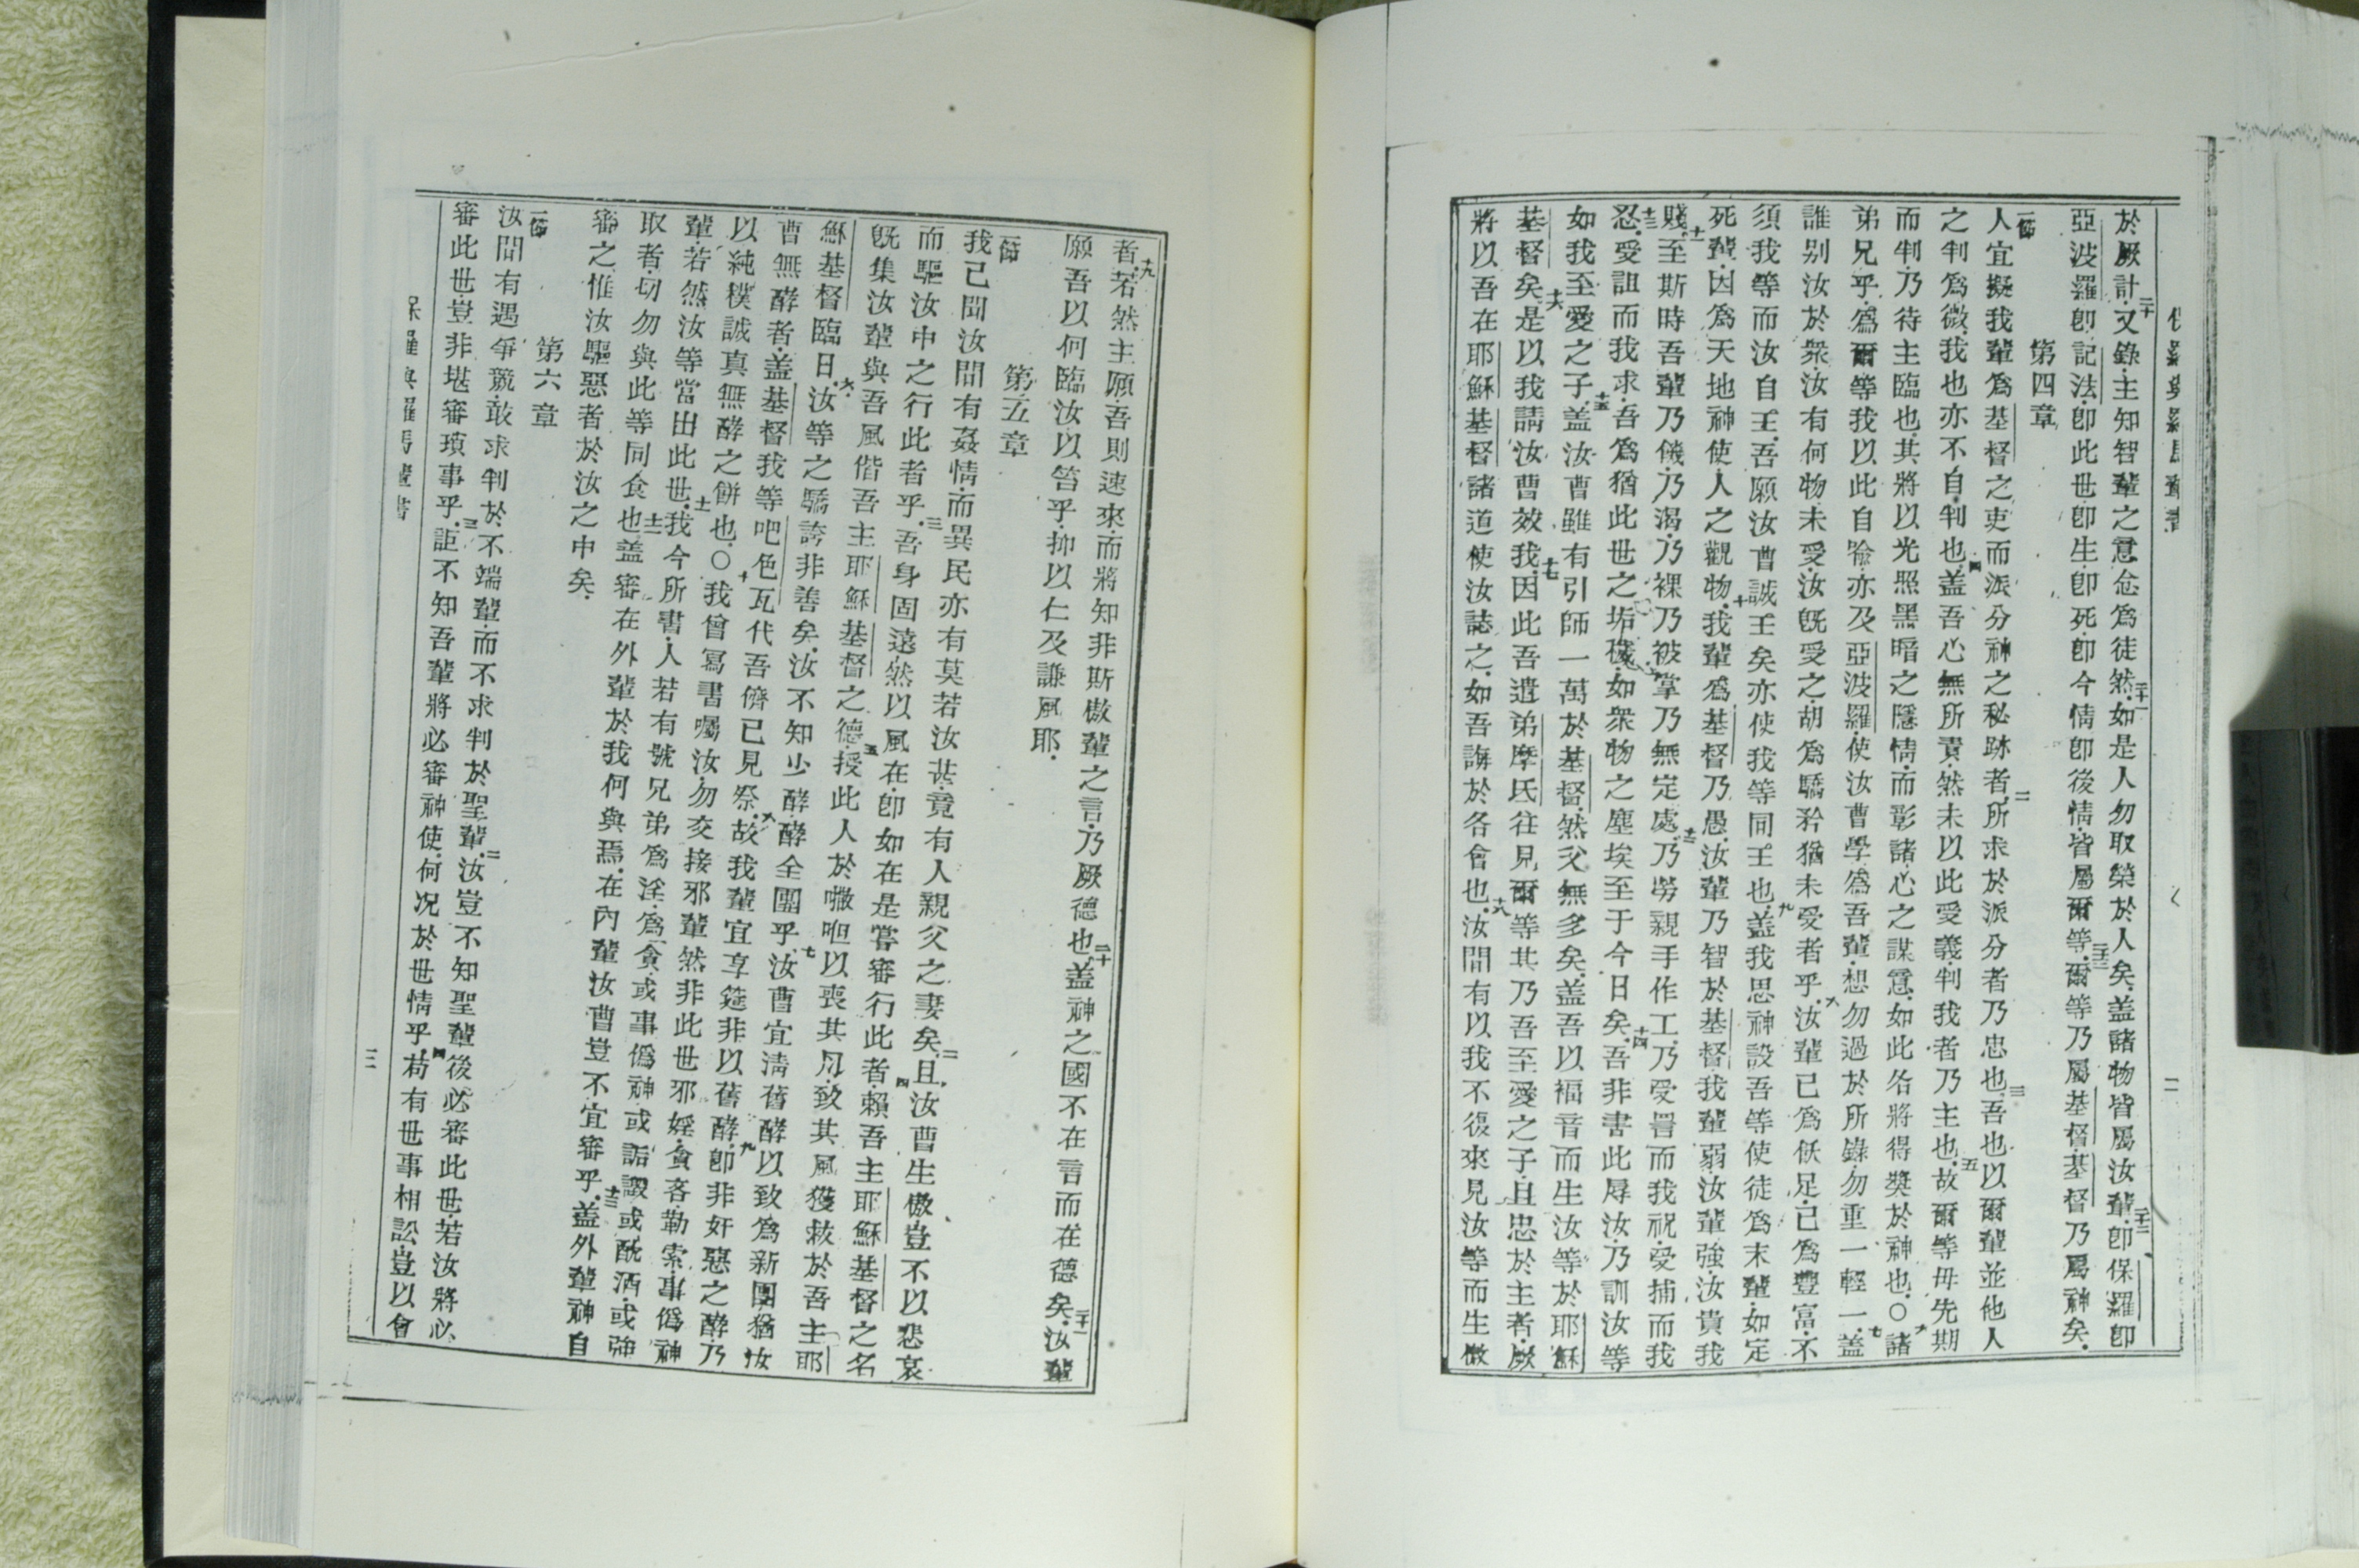 保羅與羅馬輩書
二
於厥計又錄主知智輩之意念為徒然如是人勿取榮於人矣蓋諸物皆屬汝輩卽保羅卽
亞波羅卽記法卽此世卽生卽死卽今情卽後情皆屬爾等爾等乃屬基督基督乃屬神矣
第四章
人宜擬我輩為基督之吏而派分神之秘跡者所求於派分者乃忠也吾也以爾輩並他人
之判為微我也亦不自判也蓋吾心無所責然未以此受義判我者乃主也故爾等毋先期
而判乃待主臨也其將以光照黑暗之隱情而彰諸心之謀意如此各將得獎於神也○諸
弟兄乎為爾等我以此自喻亦及亞波羅使汝曹學為吾輩想勿過於所錄勿重一輕一蓋
誰別汝於衆汝有何物未受汝旣受之胡為驕矜猶未受者乎汝輩已為飫足已為豐富不
須我等而汝自王吾願汝曹誠王矣亦使我等同王也蓋我思神設吾等使徒為末輩如定
死輩因為天地神使人之觀物我輩為基督乃愚汝輩乃智於基督我輩弱汝輩強汝貴我
賤至斯時吾輩乃饑乃渴乃裸乃被掌乃無定處乃勞親手作工乃受詈而我祝受捕而我
忍受詛而我求吾為猶此世之垢穢如衆物之塵埃至于今日矣吾非書此辱汝乃訓汝等
如我至愛之子蓋汝曹雖有引師一萬於基督然父無多矣蓋吾以福音而生汝等於耶穌
基督矣是以我請汝曹效我因此吾遣弟摩氐往見爾等其乃吾至愛之子且忠於主者厥
將以吾在耶穌基督諸道使汝誌之如吾誨於各會也汝間有以我不復來見汝等而生傲
者若然主願吾則速來而將知非斯傲輩之言乃厥德也蓋神之國不在言而在德矣汝輩
願吾以何臨汝以笞乎抑以仁及謙風耶
第五章
我已聞汝間有姦情而異民亦有莫若汝甚竟有人親父之妻矣且汝曹生傲豈不以悲哀
而驅汝中之行此者乎吾身固遠然以風在卽如在是嘗審行此者賴吾主耶穌基督之名
旣集汝輩與吾風偕吾主耶穌基督之德授此人於㘔呾以喪其肉致其風獲救於吾主耶
穌基督臨日汝等之驕誇非善矣汝不知少酵酵全團乎汝曹宜淸舊酵以致為新團猶汝
曹無酵者蓋基督我等吧色瓦代吾儕已見祭故我輩宜享筵非以舊酵卽非奸惡之酵乃
以純樸誠真無酵之餅也○我曾寫書囑汝勿交接邪輩然非此世邪婬貪吝勒索事僞神
輩若然汝等當出此世我今所書人若有號兄弟為淫為貪或事僞神或詬譤或酖酒或強
取者切勿與此等同食也蓋審在外輩於我何與焉在內輩汝曹豈不宜審乎蓋外輩神自
審之惟汝驅惡者於汝之中矣
第六章
汝間有遇爭競敢求判於不端輩而不求判於聖輩汝豈不知聖輩後必審此世若汝將必
審此世豈非堪審瑣事乎詎不知吾輩將必審神使何況於世情乎苟有世事相訟豈以會
保羅與羅馬輩書
三